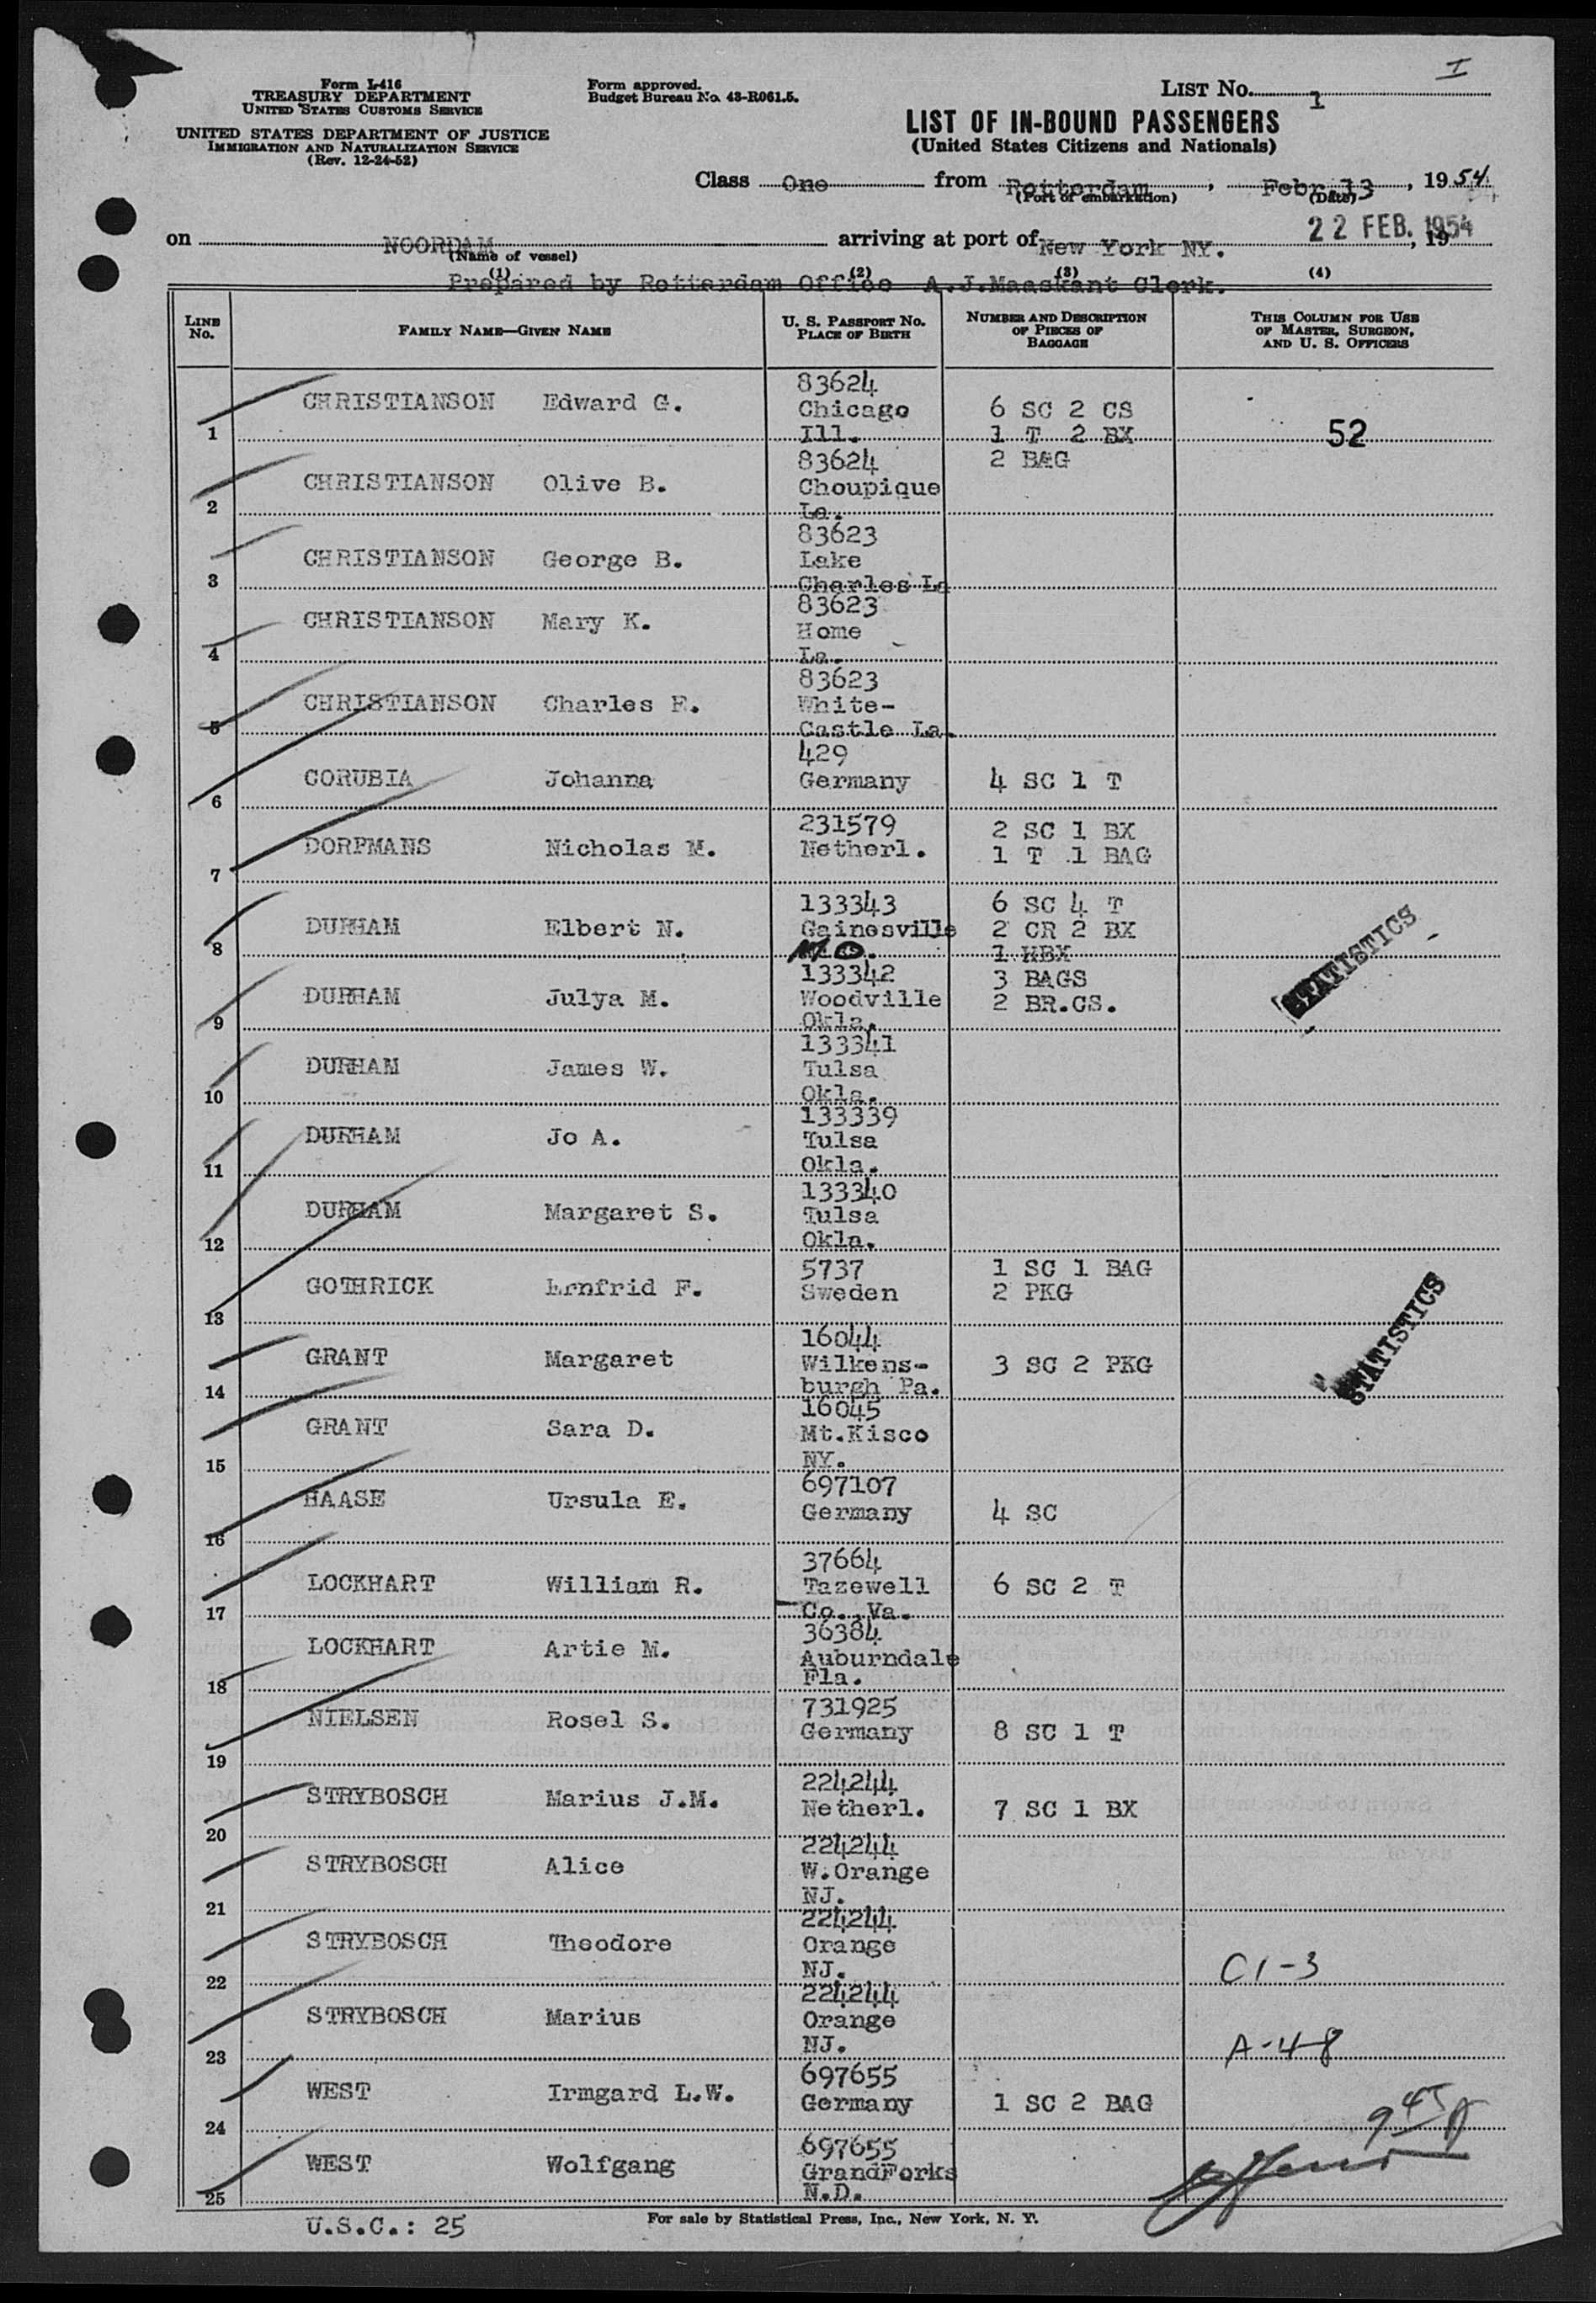 Form I-416
TREASURY DEPARTMENT
UNITED STATES CUSTOMS SERVICE
UNITED STATES DEPARTMENT OF JUSTICE
IMMIGRATION AND NATURALIZATION SERVICE
(Rev. 12-24-52)
Form approved.
Budget Bureau No. 43-R061.5.
I
LIST No. 1
LIST OF IN-BOUND PASSENGERS
(United States Citizens and Nationals)
Class One from Rotterdam, Febr.13, 1954
(Port of embarkation) (Date)
on NOORDAM arriving at port of New York NY. 22 FEB. 1954, 19
(Name of vessel)
(1) (2) (3) (4)
Prepared by Rotterdam Office A.J.Maaskant Clerk.
LINE No. FAMILY NAME—GIVEN NAME U. S. PASSPORT No. PLACE OF BIRTH NUMBER AND DESCRIPTION OF PIECES OF BAGGAGE THIS COLUMN FOR USE OF MASTER, SURGEON, AND U. S. OFFICERS
1 CHRISTIANSON Edward G. 83624 Chicago Ill. 6 SC 2 CS 1 T 2 BX 2 BAG 52
2 CHRISTIANSON Olive B. 83624 Choupique La.
3 CHRISTIANSON George B. 83623 Lake Charles La
4 CHRISTIANSON Mary K. 83623 Home La.
5 CHRISTIANSON Charles E. 83623 White-Castle La.
6 CORUBIA Johanna 429 Germany 4 SC 1 T
7 DORPMANS Nicholas M. 231579 Netherl. 2 SC 1 BX 1 T 1 BAG
8 DURHAM Elbert N. 133343 Gainesville MO. 6 SC 4 T 2 CR 2 BX 1 WBX
STATISTICS
9 DURHAM Julya M. 133342 Woodville Okla. 3 BAGS 2 BR.CS.
10 DURHAM James W. 133341 Tulsa Okla.
11 DURHAM Jo A. 133339 Tulsa Okla.
12 DURHAM Margaret S. 133340 Tulsa Okla.
13 GOTHRICK Ernfrid F. 5737 Sweden 1 SC 1 BAG 2 PKG
STATISTICS
14 GRANT Margaret 16044 Wilkens-burgh Pa. 3 SC 2 PKG
15 GRANT Sara D. 16045 Mt.Kisco NY.
16 HAASE Ursula E. 697107 Germany 4 SC
17 LOCKHART William R. 37664 Tazewell Co., Va. 6 SC 2 T
18 LOCKHART Artie M. 36384 Auburndale Fla.
19 NIELSEN Rosel S. 731925 Germany 8 SC 1 T
20 STRYBOSCH Marius J.M. 224244 Netherl. 7 SC 1 BX
21 STRYBOSCH Alice 224244 W.Orange NJ.
22 STRYBOSCH Theodore 224244 Orange NJ. C1-3
23 STRYBOSCH Marius 224244 Orange NJ. A-48
24 WEST Irmgard L.W. 697655 Germany 1 SC 2 BAG 9 45
25 WEST Wolfgang 697655 GrandForks N.D.
U.S.C.: 25
For sale by Statistical Press, Inc., New York, N. Y.